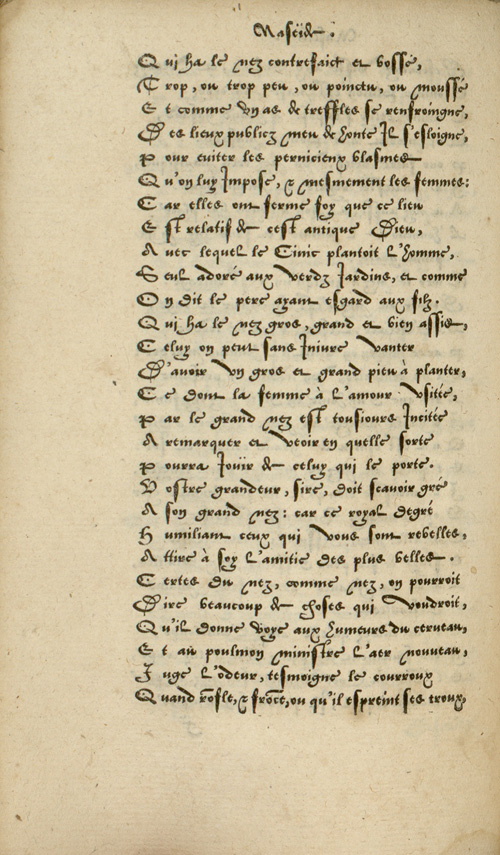 Naseïde.
Qui ha le nez contrefaict et bossé,
Trop, ou trop peu, ou poinctu, ou moussé
Et comme un as de treffles se renfroingne,
Des lieux publicz meu de honte Il s'esloigne,
Pour euiter les pernicieux blasmes
Qu'on luy Impose, & mesmement les femmes:
Car elles ont ferme foy que ce lieu
Est relatif de cest antique Dieu,
Auec lequel le Cinic plantoit L'homme,
Seul adoré aux verdz Jardins, et comme
On dit le pere ayant esgard aux filz.
Qui ha le nez gros, grand et bien assis,
Celuy on peut sans Iniure vanter
D'avoir un gros et grand pieu à planter,
Ce dont la femme à L'amour usitée,
Par le grand nez est tousiours Incitée
A remarquer et veoir en quelle sorte
Pourra Jouïr de celuy qui le porte.
Vostre grandeur, sire, doit scauoir gré
A son grand nez: car ce royal degré
Humiliant ceux qui vous sont rebelles,
Attire à soy L'amitié des plus belles.
Certes du nez, comme nez, on pourroit
Dire beaucoup de choses qui voudroit,
Qu'il donne voye aux humeurs du cerueau,
Et au poulmon ministre L'aer nouueau,
Juge L'odeur, tesmoigne le courroux
Quand rõfle, & frõce, ou qu'il espreint ses troux,